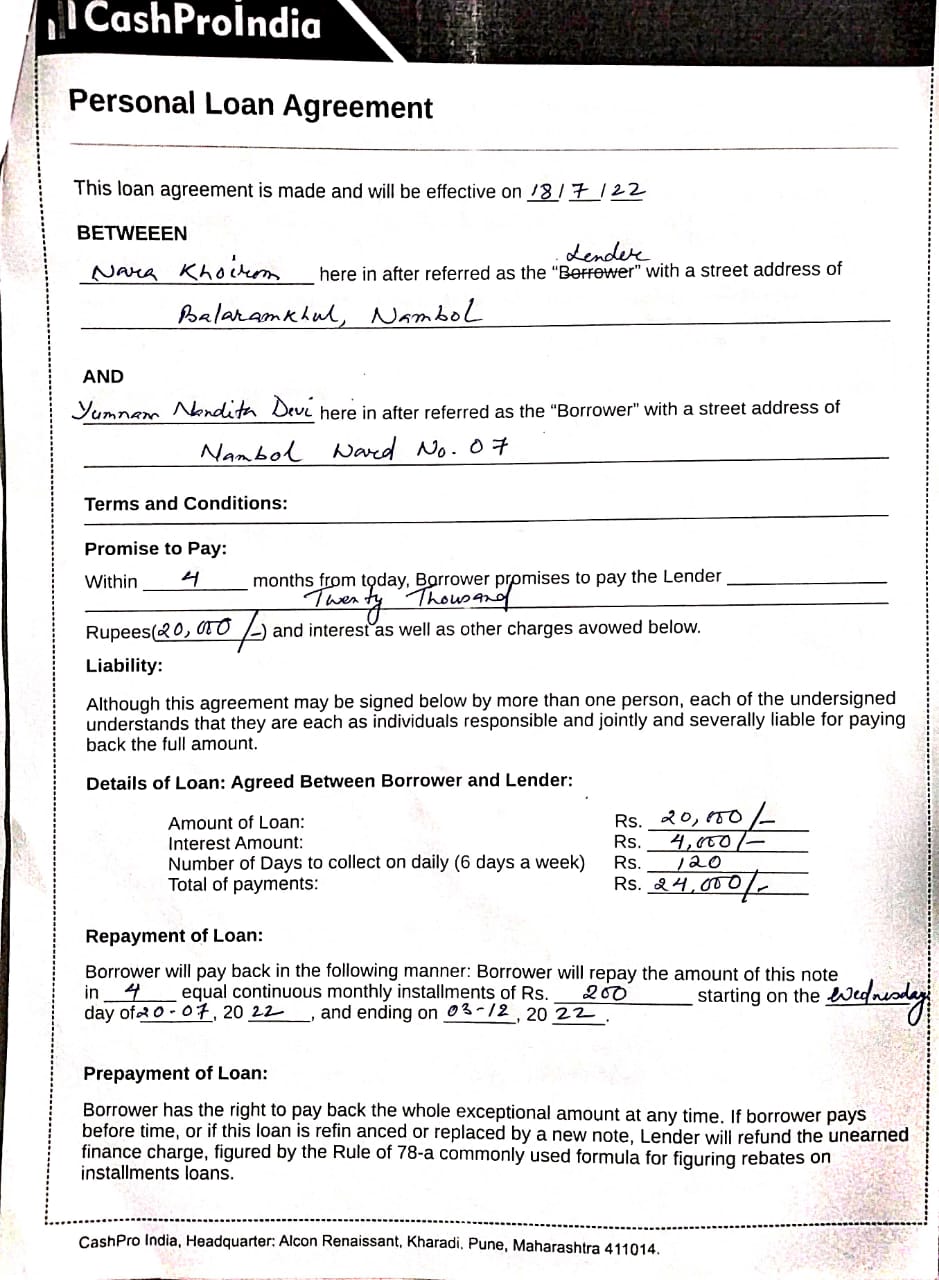 CashProIndia
Personal Loan Agreement
This loan agreement is made and will be effective on 18/7/22
BETWEEEN
Nara Khoirom here in after referred as the "Borrower" with a street address of
Lender
Balaramkhul, Nambol
AND
Yumnam Nandita Devi here in after referred as the "Borrower" with a street address of
Nambol Ward No. 07
Terms and Conditions:
Promise to Pay:
Within 4 months from today, Borrower promises to pay the Lender
Twenty Thousand
Rupees(20,000/-) and interest as well as other charges avowed below.
Liability:
Although this agreement may be signed below by more than one person, each of the undersigned
understands that they are each as individuals responsible and jointly and severally liable for paying
back the full amount.
Details of Loan: Agreed Between Borrower and Lender:
Amount of Loan: Rs. 20,000/-
Interest Amount: Rs. 4,000/-
Number of Days to collect on daily (6 days a week) Rs. 120
Total of payments: Rs. 24,000/-
Repayment of Loan:
Borrower will pay back in the following manner: Borrower will repay the amount of this note
in 4 equal continuous monthly installments of Rs. 200 starting on the Wednesday
day of 20-07, 20 22, and ending on 03-12, 20 22.
Prepayment of Loan:
Borrower has the right to pay back the whole exceptional amount at any time. If borrower pays
before time, or if this loan is refin anced or replaced by a new note, Lender will refund the unearned
finance charge, figured by the Rule of 78-a commonly used formula for figuring rebates on
installments loans.
CashPro India, Headquarter: Alcon Renaissant, Kharadi, Pune, Maharashtra 411014.